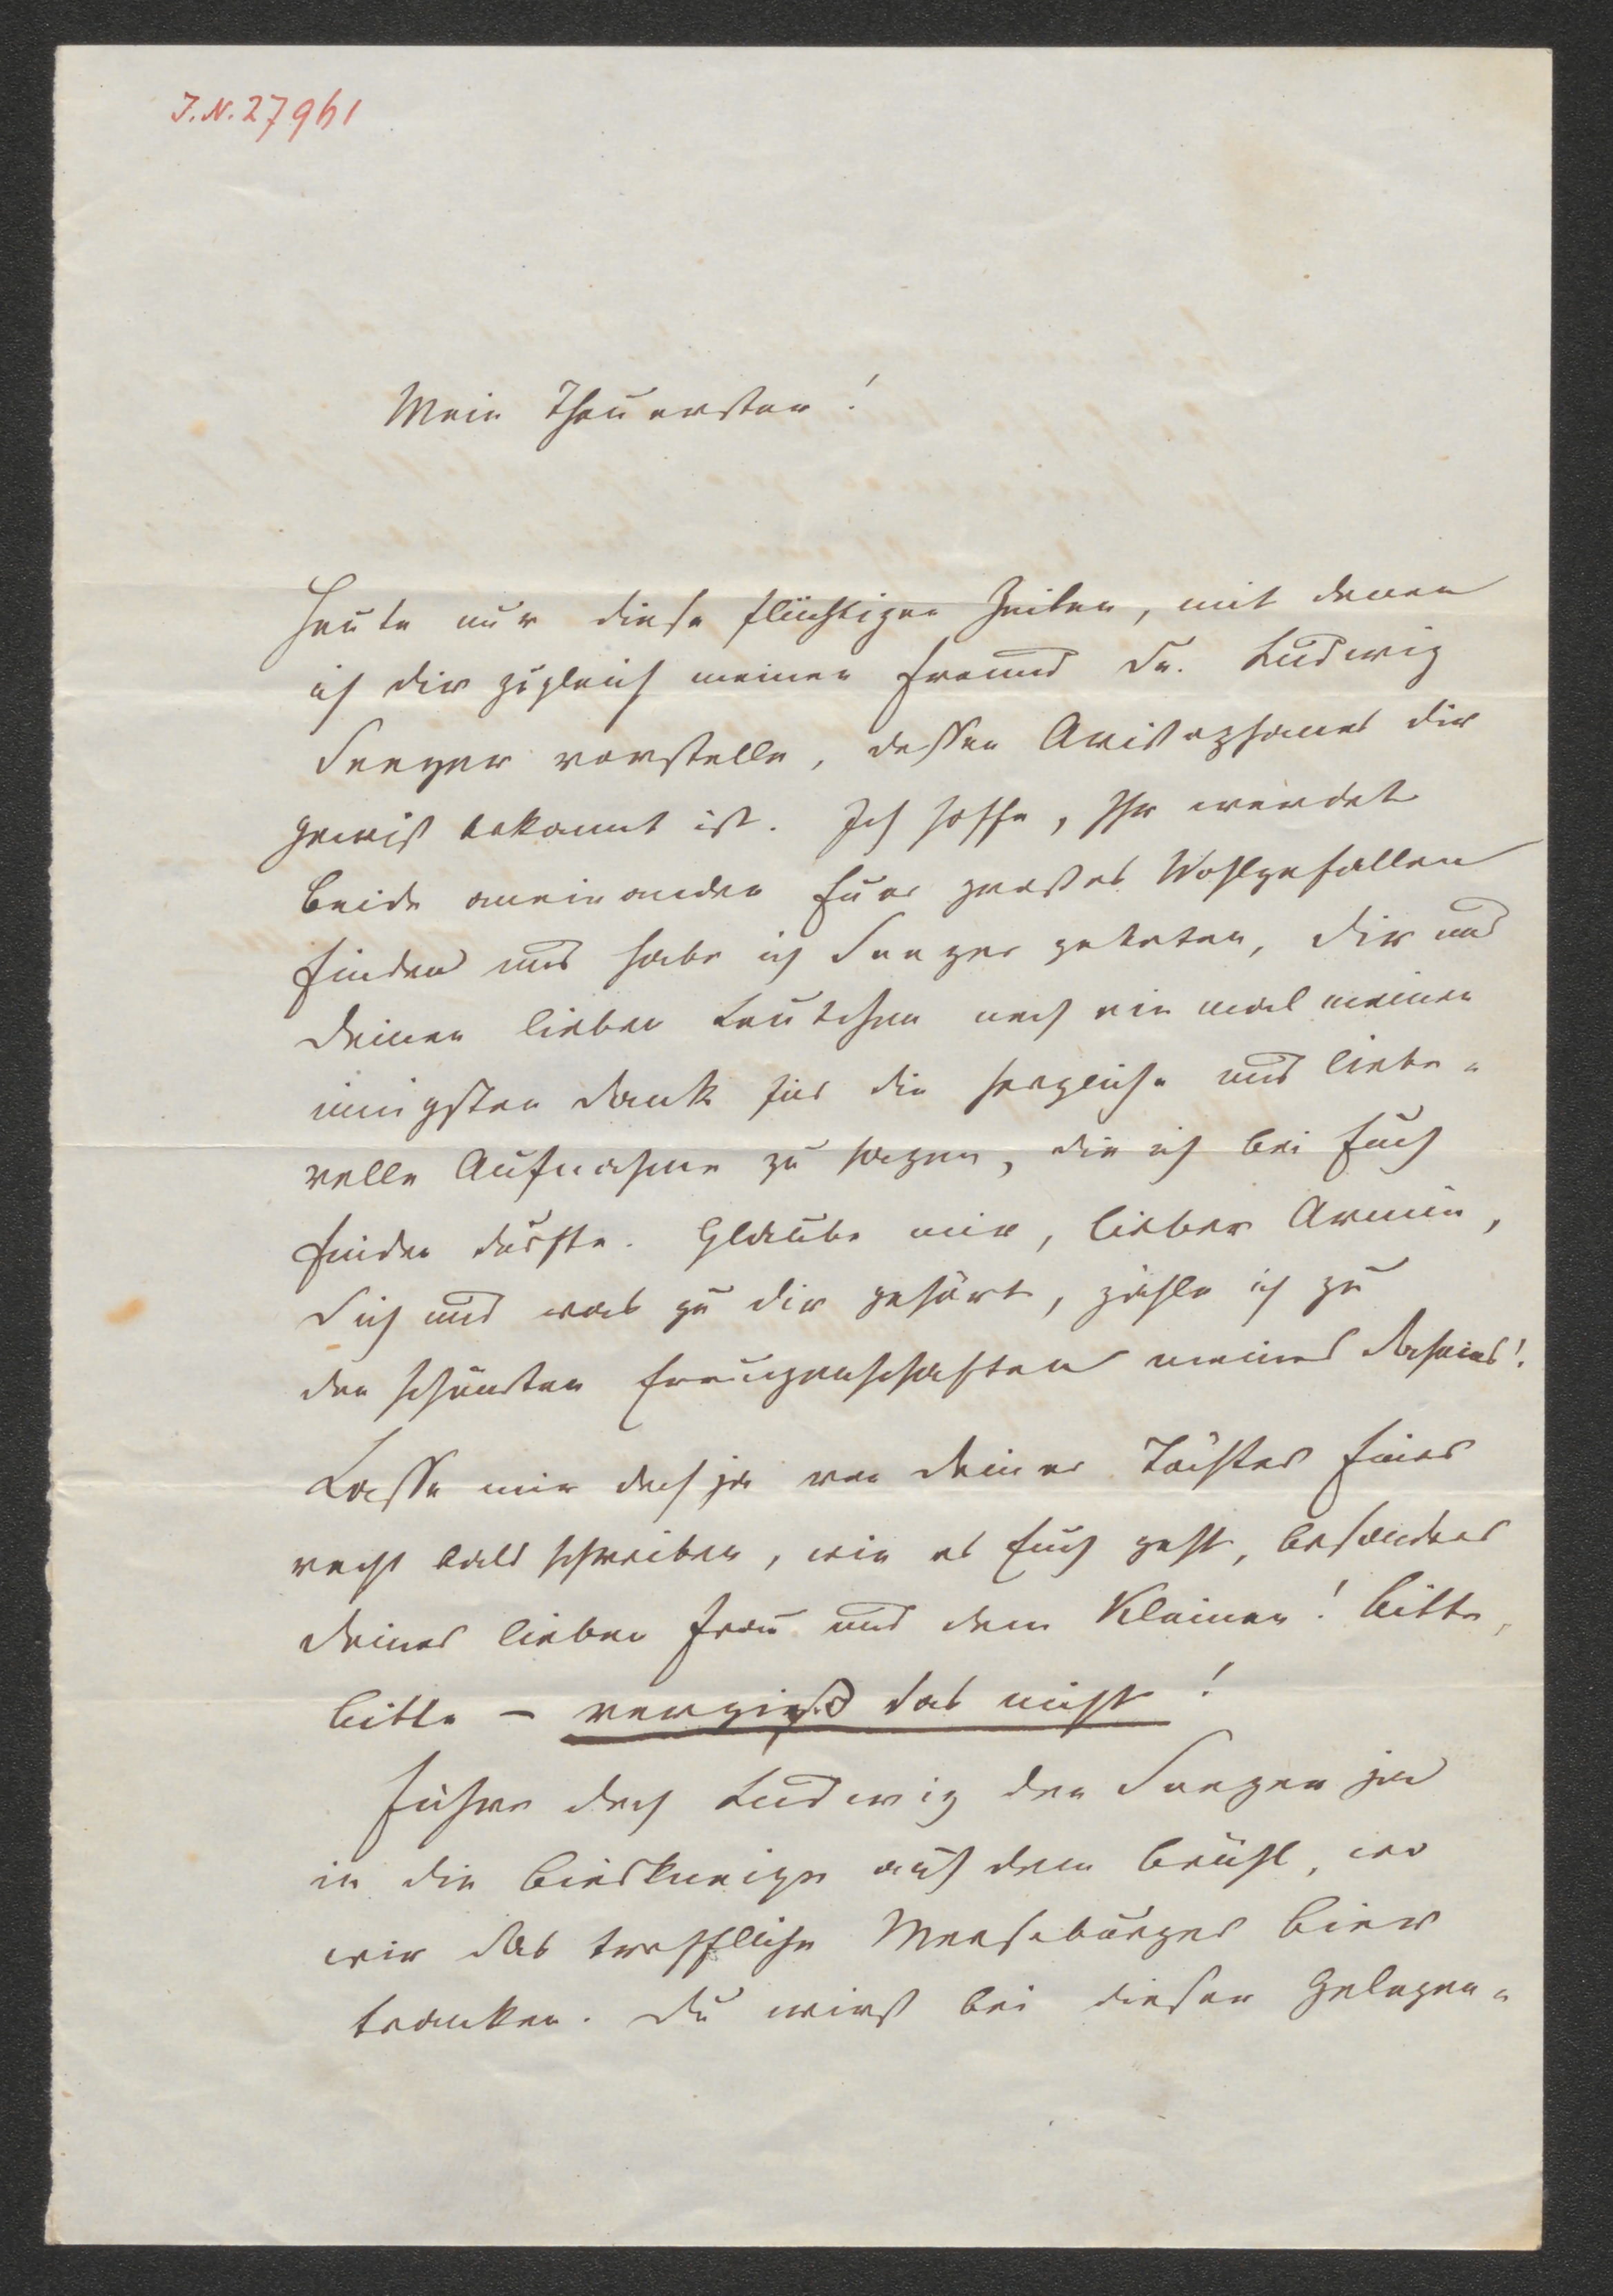 J.N. 27961
Mein Theuerster!
Heute nur diese flüchtigen Zeilen, mit denen
ich dir zugleich meinen Freund Dr. Ludwig
Seeger vorstelle, dessen Aristophanes dir
gewiß bekannt ist. Ich hoffe, Ihr werdet
beide aneinander Euer großes Wohlgefallen
finden und habe ich Seeger gebeten, dir und
deinen lieben Leutchen noch ein mal meinen
innigsten Dank für die herzliche und liebe-
volle Aufnahme zu sagen, die ich bei Euch
finden durfte. Glaube mir, lieber Armin,
Dich und was zu dir gehört, zähle ich zu
den schönsten Errungenschaften meines Daseins!
Lasse mir doch ja von deiner Töchter Einer
recht bald schreiben, wie es Euch geht, besonders
deiner lieben Frau und dem Kleinen! Bitte,
bitte – vergiß das nicht!
Führe doch Ludwig den Seeger ja
in die Bierkneipe auf dem Brühl, wo
wir das treffliche Merseburger Bier
tranken. Du wirst bei dieser Gelegen-